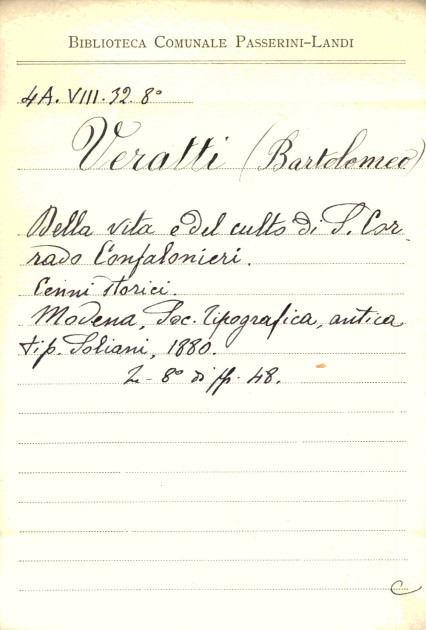 BIBLIOTECA COMUNALE PASSERINI-LANDI
4A. VIII. 32. 8°
Veratti (Bartolomeo)
Della vita e del culto di S. Cor-
rado Confalonieri.
Cenni storici.
Modena, Soc. Tipografica, antica
tip. Soliani, 1880.
In-8° di pp. 48.
C